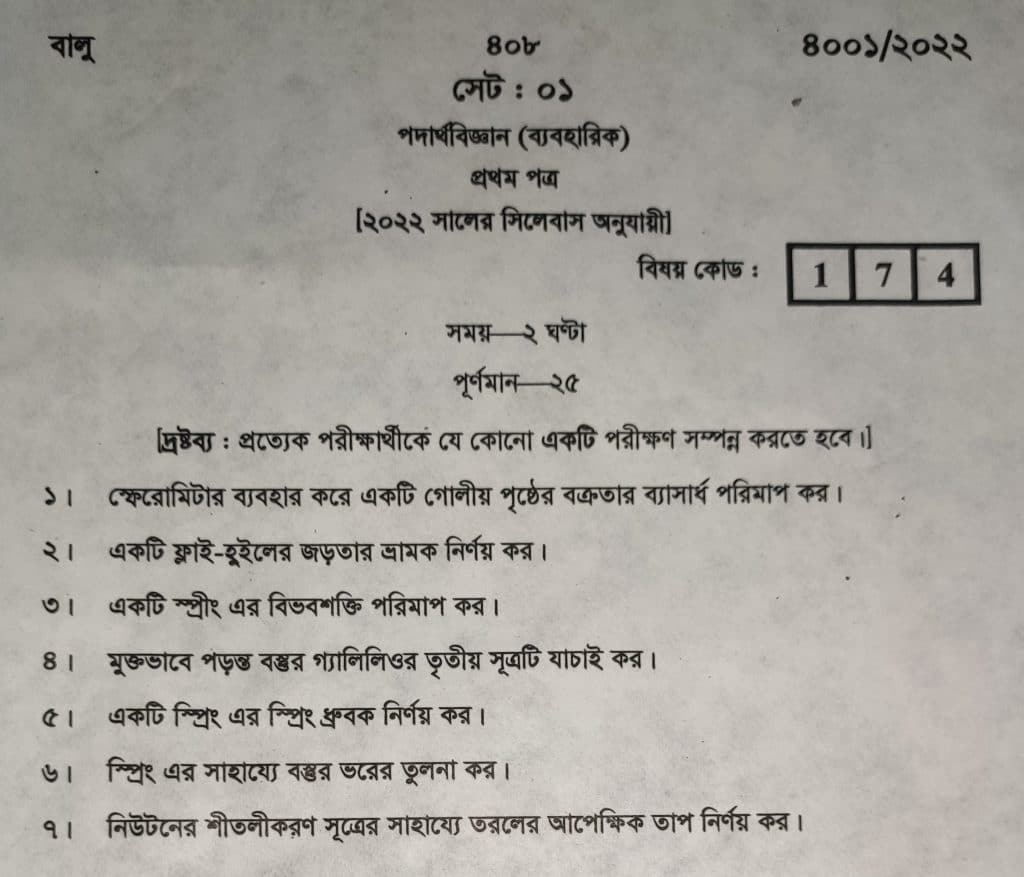 বালু ৪০৮ ৪০০১/২০২২
সেট : ০১
পদার্থবিজ্ঞান (ব্যবহারিক)
প্রথম পত্র
[২০২২ সালের সিলেবাস অনুযায়ী]
বিষয় কোড : 1 7 4
সময়—২ ঘণ্টা
পূর্ণমান—২৫
[দ্রষ্টব্য : প্রত্যেক পরীক্ষার্থীকে যে কোনো একটি পরীক্ষণ সম্পন্ন করতে হবে।]
১। স্ফেরোমিটার ব্যবহার করে একটি গোলীয় পৃষ্ঠের বক্রতার ব্যাসার্ধ পরিমাপ কর।
২। একটি ফ্লাই-হুইলের জড়তার ভ্রামক নির্ণয় কর।
৩। একটি স্প্রীং এর বিভবশক্তি পরিমাপ কর।
৪। মুক্তভাবে পড়ন্ত বস্তুর গ্যালিলিওর তৃতীয় সূত্রটি যাচাই কর।
৫। একটি স্প্রিং এর স্প্রিং ধ্রুবক নির্ণয় কর।
৬। স্প্রিং এর সাহায্যে বস্তুর ভরের তুলনা কর।
৭। নিউটনের শীতলীকরণ সূত্রের সাহায্যে তরলের আপেক্ষিক তাপ নির্ণয় কর।